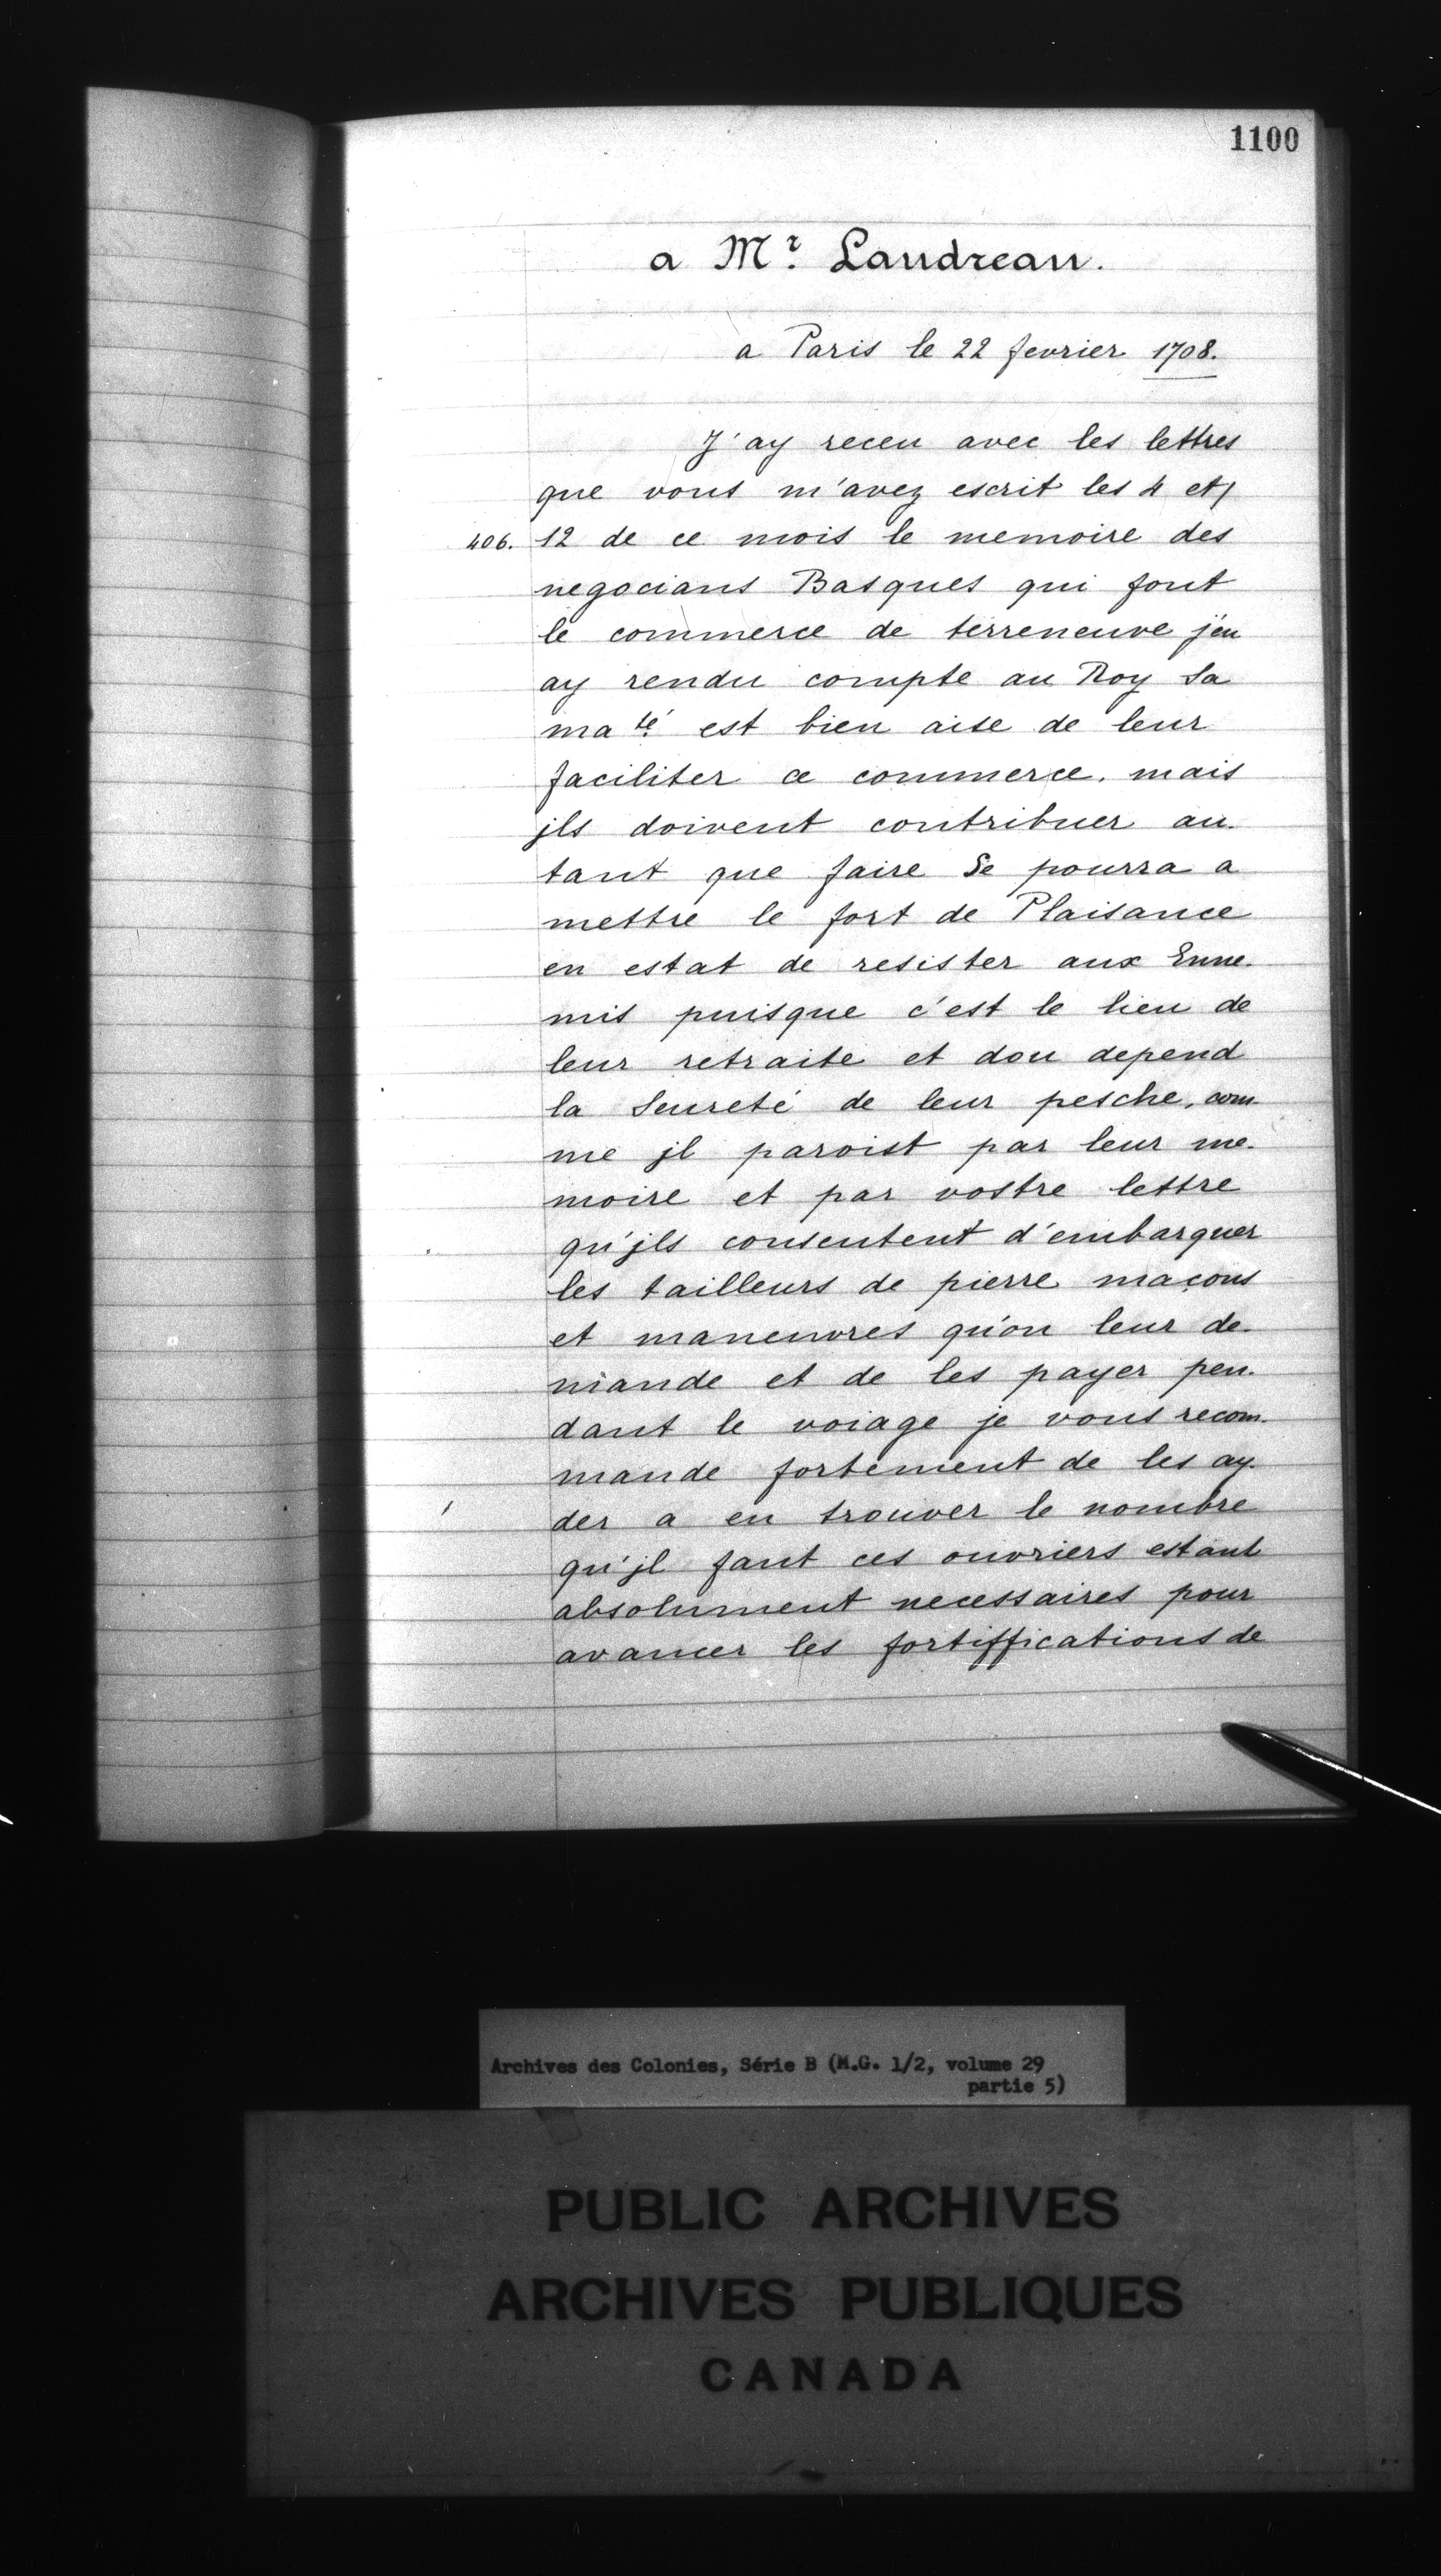 1100
a Mr. Landreau.
a Paris le 22 fevrier 1708.
J'ay receu avec les lettres
que vous m'avez escrit les 4 et
406. 12 de ce mois le memoire des
negocians Basques qui font
le commerce de terreneuve j'en
ay rendu compte au Roy sa
maté est bien aise de leur
faciliter ce commerce. mais
jls doivent contribuer au-
tant que faire se pourra a
mettre le fort de Plaisance
en estat de resister aux Enne-
mis puisque c'est le lieu de
leur retraite et dou depend
la seureté de leur pesche, com-
me jl paroist par leur me-
moire et par vostre lettre
qu'jls consentent d'embarquer
les tailleurs de pierre maçons
et maneuvres qu'on leur de-
mande et de les payer pen-
dant le voiage je vous recom-
mande fortement de les ay-
der a en trouver le nombre
qu'jl faut ces ouvriers estant
absolument necessaires pour
avancer les fortiffications de
Archives des Colonies, Série B (M.G. 1/2, volume 29
partie 5)
PUBLIC ARCHIVES
ARCHIVES PUBLIQUES
CANADA